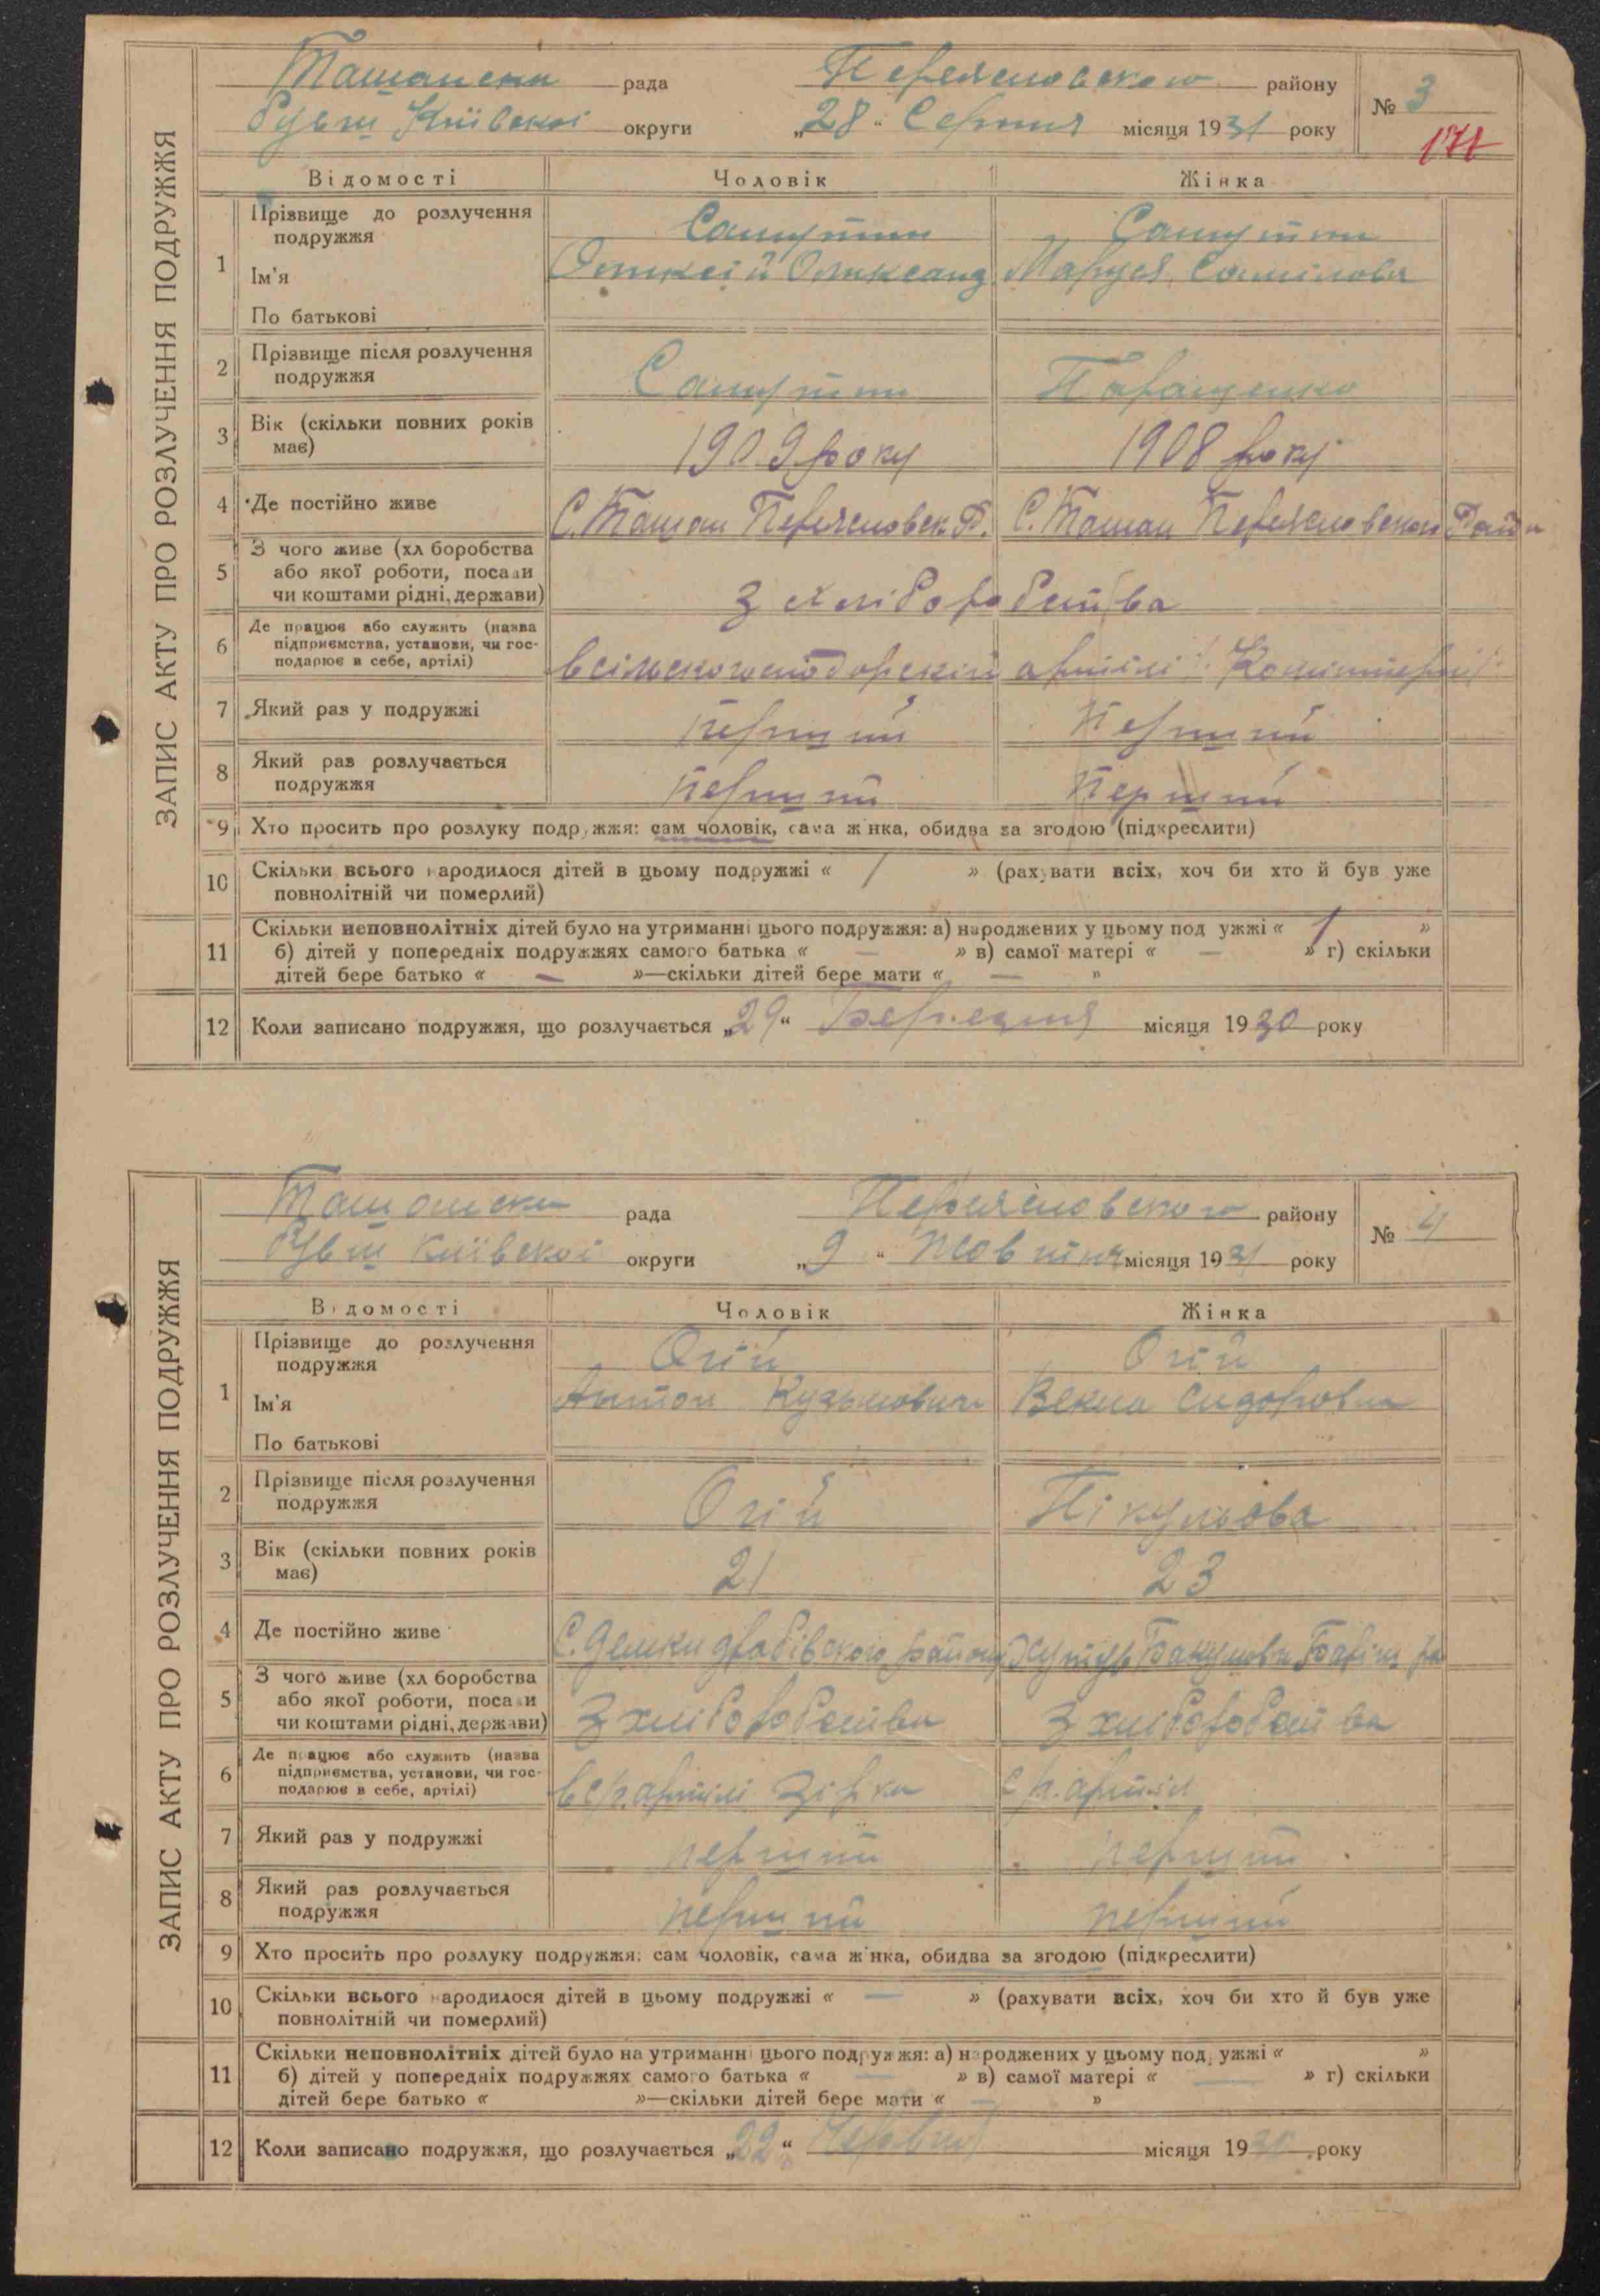 ЗАПИС АКТУ ПРО РОЗЛУЧЕННЯ ПОДРУЖЖЯ
Ташанська рада Переяславського району № 3
бувш Київської округи „28“ Серпня місяця 1931 року
171
Відомості Чоловік Жінка
1 Прізвище до розлучення
подружжя
Ім'я Марися
По батькові
2 Прізвище після розлучення
подружжя Паращенко
3 Вік (скільки повних років
має) 1909 року 1908 року
4 Де постійно живе С. Ташан Переясловск. Р. С. Ташан
5 З чого живе (хл боробства
або якої роботи, посади
чи коштами рідні, держави) З хліборобства
6 Де працює або служить (назва
підприємства, установи, чи гос-
подарює в себе, артілі) артілі
7 Який раз у подружжі перший перший
8 Який раз розлучається
подружжя перший перший
9 Хто просить про розлуку подружжя: сам чоловік, сама жінка, обидва за згодою (підкреслити)
10 Скільки всього народилося дітей в цьому подружжі « 1 » (рахувати всіх, хоч би хто й був уже
повнолітній чи померлий)
11 Скільки неповнолітніх дітей було на утриманні цього подружжя: а) народжених у цьому подружжі « 1 »
б) дітей у попередніх подружжях самого батька « — » в) самої матері « — » г) скільки
дітей бере батько « — »—скільки дітей бере мати « — »
12 Коли записано подружжя, що розлучається „29“ Березня місяця 1930 року
ЗАПИС АКТУ ПРО РОЗЛУЧЕННЯ ПОДРУЖЖЯ
Ташанська рада Переясловського району № 4
бувш Київської округи „9“ Жовтня місяця 1931 року
Відомості Чоловік Жінка
1 Прізвище до розлучення
подружжя Огій Огій
Ім'я Антон Кузьмович Векла Сидоровна
По батькові
2 Прізвище після розлучення
подружжя Огій Пікульова
3 Вік (скільки повних років
має) 21 23
4 Де постійно живе С. Демки драбівского району Хутір
5 З чого живе (хл боробства
або якої роботи, посади
чи коштами рідні, держави) З хліборобства З хліборобства
6 Де працює або служить (назва
підприємства, установи, чи гос-
подарює в себе, артілі) артілі Зірка артіл
7 Який раз у подружжі перший перший
8 Який раз розлучається
подружжя перший перший
9 Хто просить про розлуку подружжя: сам чоловік, сама жінка, обидва за згодою (підкреслити)
10 Скільки всього народилося дітей в цьому подружжі « — » (рахувати всіх, хоч би хто й був уже
повнолітній чи померлий)
11 Скільки неповнолітніх дітей було на утриманні цього подружжя: а) народжених у цьому подружжі « »
б) дітей у попередніх подружжях самого батька « — » в) самої матері « — » г) скільки
дітей бере батько « »—скільки дітей бере мати « — »
12 Коли записано подружжя, що розлучається „22“ Червня місяця 1930 року